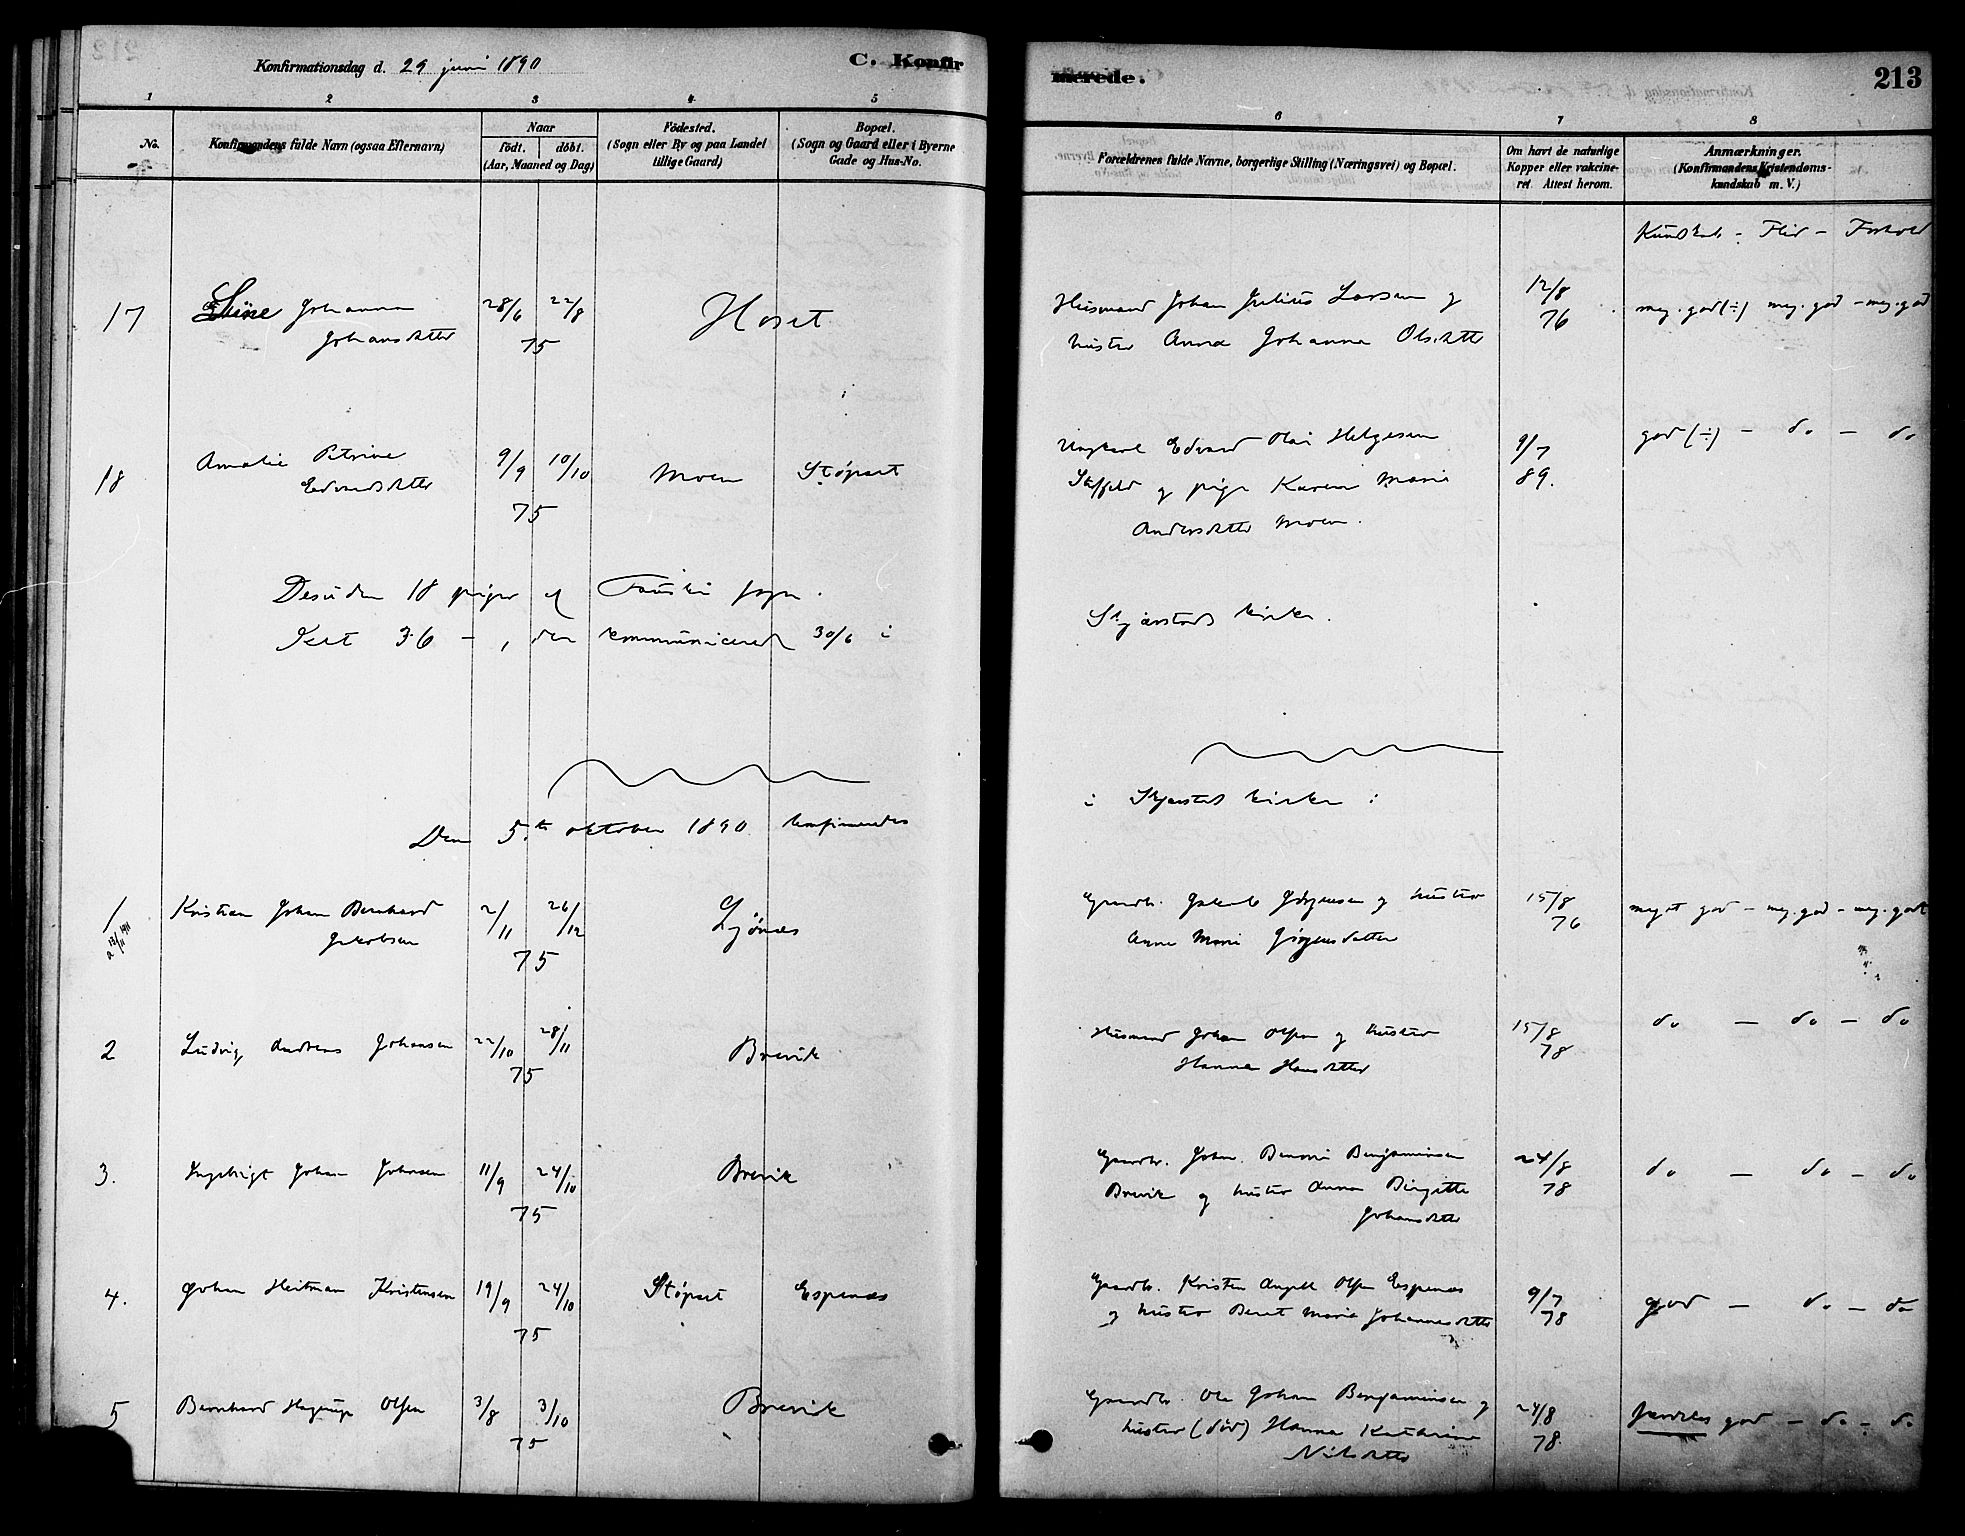 Konfirmationsdag d. 29 juni 1890
C. Konfir
merede.
213
1 2 3 4 5
6 7 8
No.
Konfirmandens fulde Navn (ogsaa Efternavn)
Naar
født. döbt.
(Aar, Maaned og Dag)
Födested.
(Sogn eller By og paa Landet
tillige Gaard)
Bopæl.
(Sogn og Gaard eller i Byerne
Gade og Hus-No.
Forældrenes fulde Navne, borgerlige Stilling (Næringsvei) og Bopæl.
Om havt de naturlige
Kopper eller vakcine-
ret. Attest herom.
Anmærkninger.
(Konfirmandens Kristendoms-
kundskab m. V.)
Kundskab - Flid - Forhold
17 Stine Johanna 28/6 22/8 Hoset
Johansdatter 75
Husmand Johan Julius Larsen og 12/8 meg. god (÷) meg. god - meg. god
hustru Anna Johanna Olsdatter 76
18 Amalie Petrine 9/9 10/10 Moen Støpset
Edvardsdatter 75
Ungkarl Edvard Olai Helgesen 9/7 god (÷) - do - do
og pige Karen Marie 89.
Andersdatter Moen.
Desuden 18 piger af Fauske sogn.
36 -, der kommunicerede 30/6 i Skjærstads kirke.
Den 5.te oktober 1890 konfirmeredes i Skjerstad kirke :
1 Kristian Johan Bernhard 2/11 26/12 Ljønæs
Jakobsen 75
Gaardbr. Jakob Jørgensen og hustru 15/8 meget god - meg. god - meg. godt
Anne Marie Jørgensdatter 76
2 Ludvig Andreas Johansen 22/10 28/11 Brevik
75
Husmand Johan Olsen og hustru 15/8 do - do - do
Hanna Hansdatter 78
3. Ingebrigt Johan Johnsen 11/9 24/10 Brevik
75
Gaardbr. John Benoni Benjaminsen 24/8 do - do - do
Brevik og hustru Anna Birgitte 78
Johansdatter
4. Johan Heitman Kristensen 19/9 24/10 Støpset Espenæs
75
Gaardbr. Kristen Angell Olsen Espenæs 9/7 god - do - do
og hustru Beret Marie Johannesdatter 78
5 Bernhard Hagerup Olsen 3/8 3/10 Brevik
75
Gaardbr. Ole Johan Benjaminsen og 24/8 særdeles god - do - do
hustru (død) Hanna Kathrine 78.
Nilsdatter